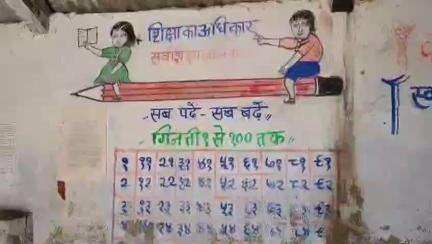 शिक्षा का अधिकार
सब पढे - सब बढें
गिनती १ से १०० तक
१ ११ २१ ३१ ४१ ५१ ६१ ७१ ८१ ९१
२ १२ २२ ३२ ४२ ५२ ६२ ७२ ८२ ९२
३ १३ २३ ३३ ४३ ५३ ६३ ७३ ८३ ९३
४ १४ २४ ३४ ४४ ५४ ६४ ७४ ८४ ९४